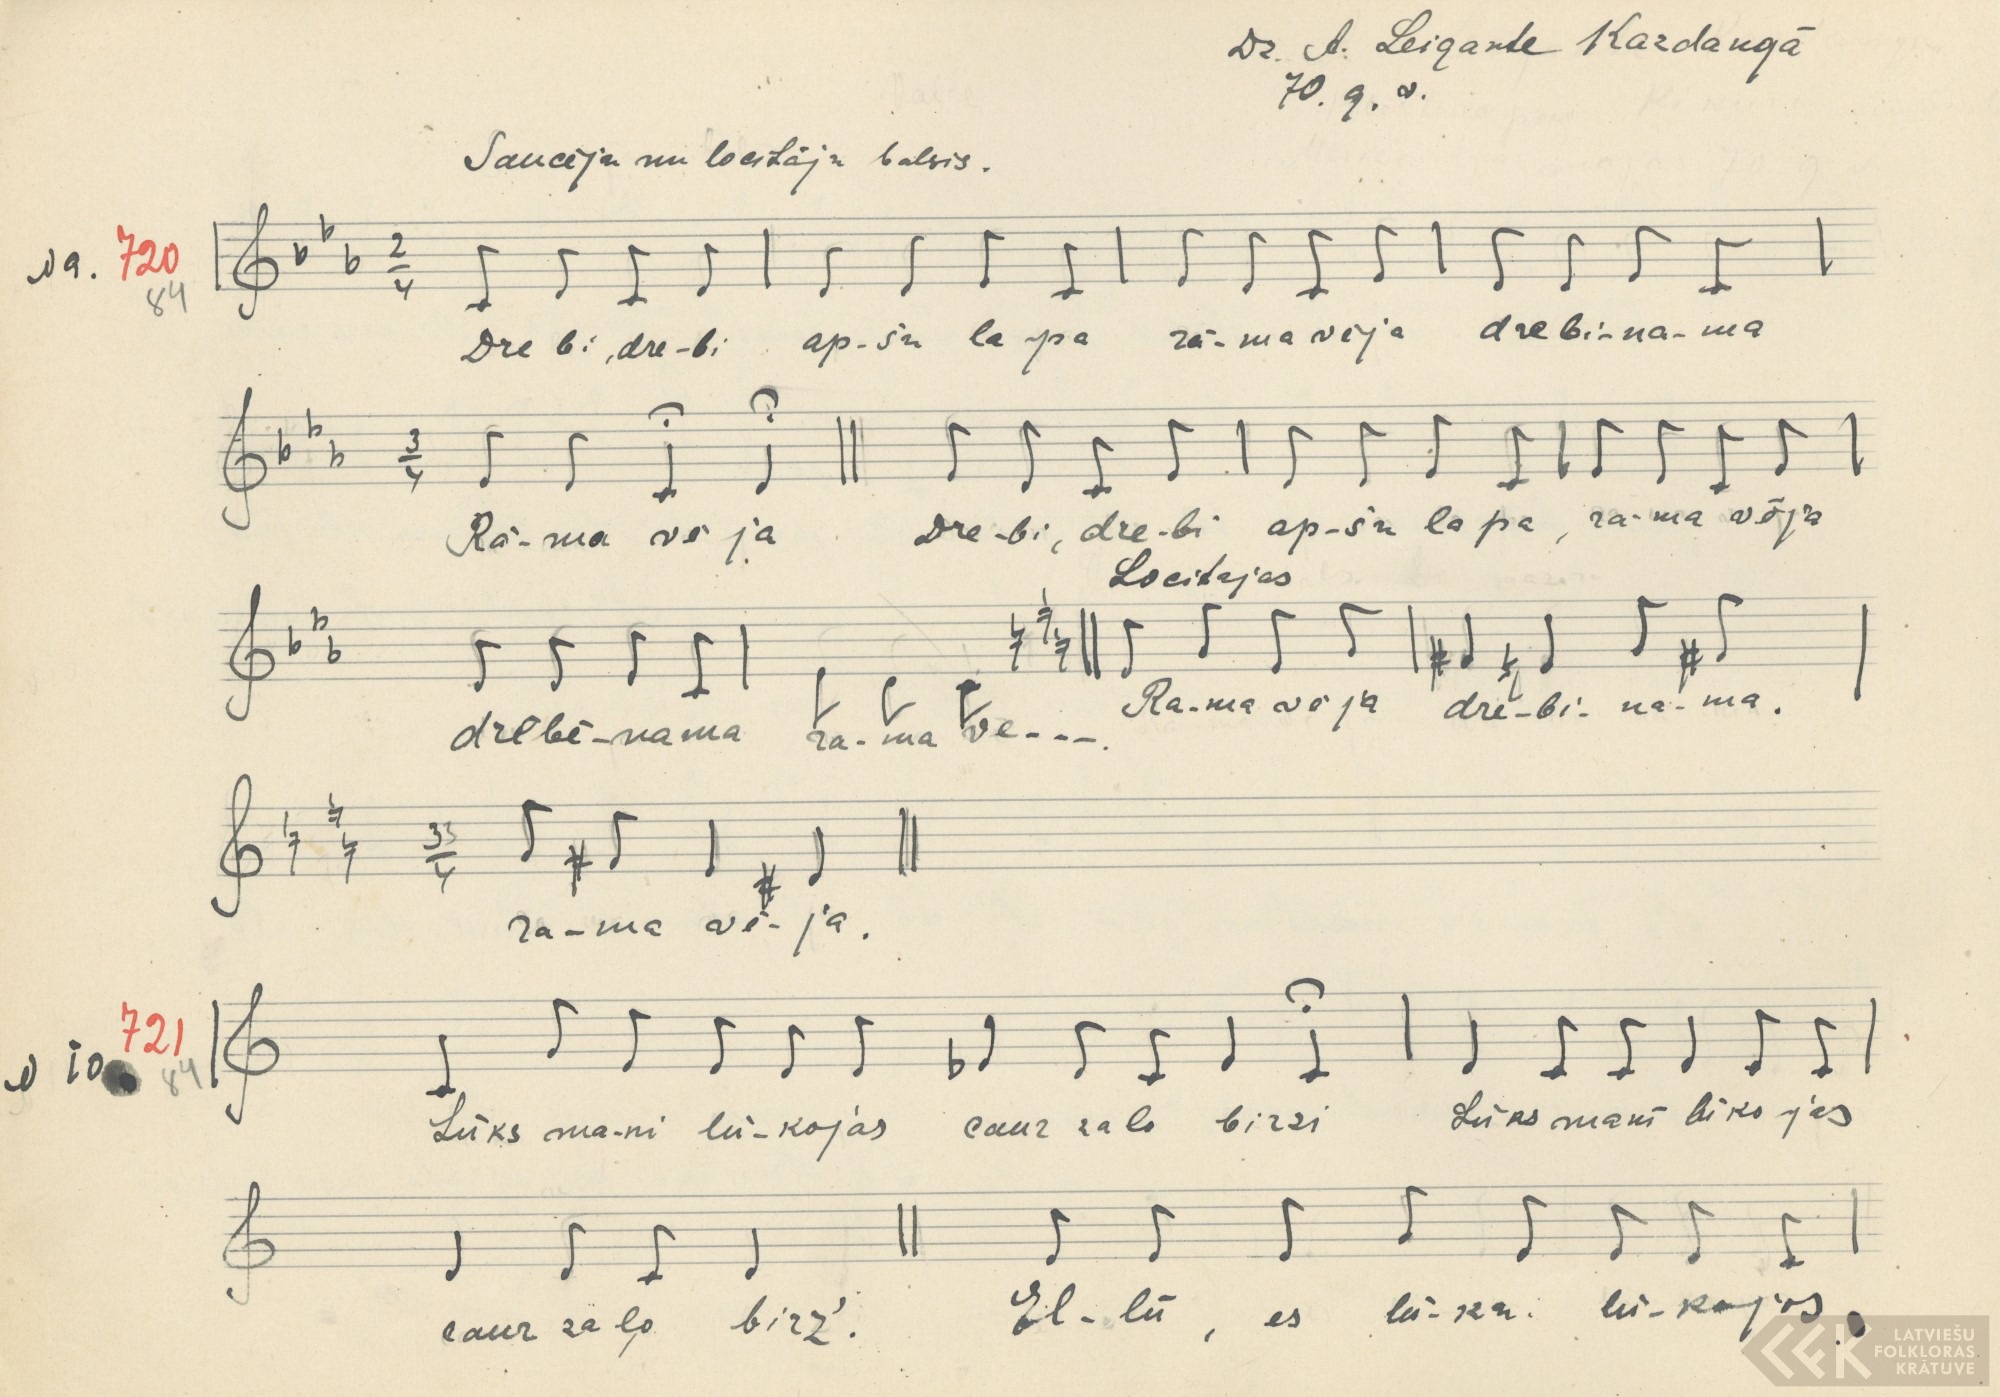 Dz. A. Leigante Kazdangā
70. g. v.
Saucēju un locītāju balsis.
N 9. 720
84
2/4
Dre bi, dre-bi ap-šu la pa rā-ma vēja dre bi-na-ma
3/4
Rā-ma vē ja Dre-bi, dre-bi ap-šu la pa, rā-ma vēja
Locītajas
drebē-nama ra-ma ve---. Ra-ma vē ja dre-bi-na-ma.
3/4
ra-ma vē-ja.
N 10. 721
84
Lūks ma-ni lū-kojas caur za lo birzi Lūks mani lūko jas
caur za lo birz'.
El-lū, es lū-ku. lū-kojos.
LATVIEŠU
FOLKLORAS
KRĀTUVE